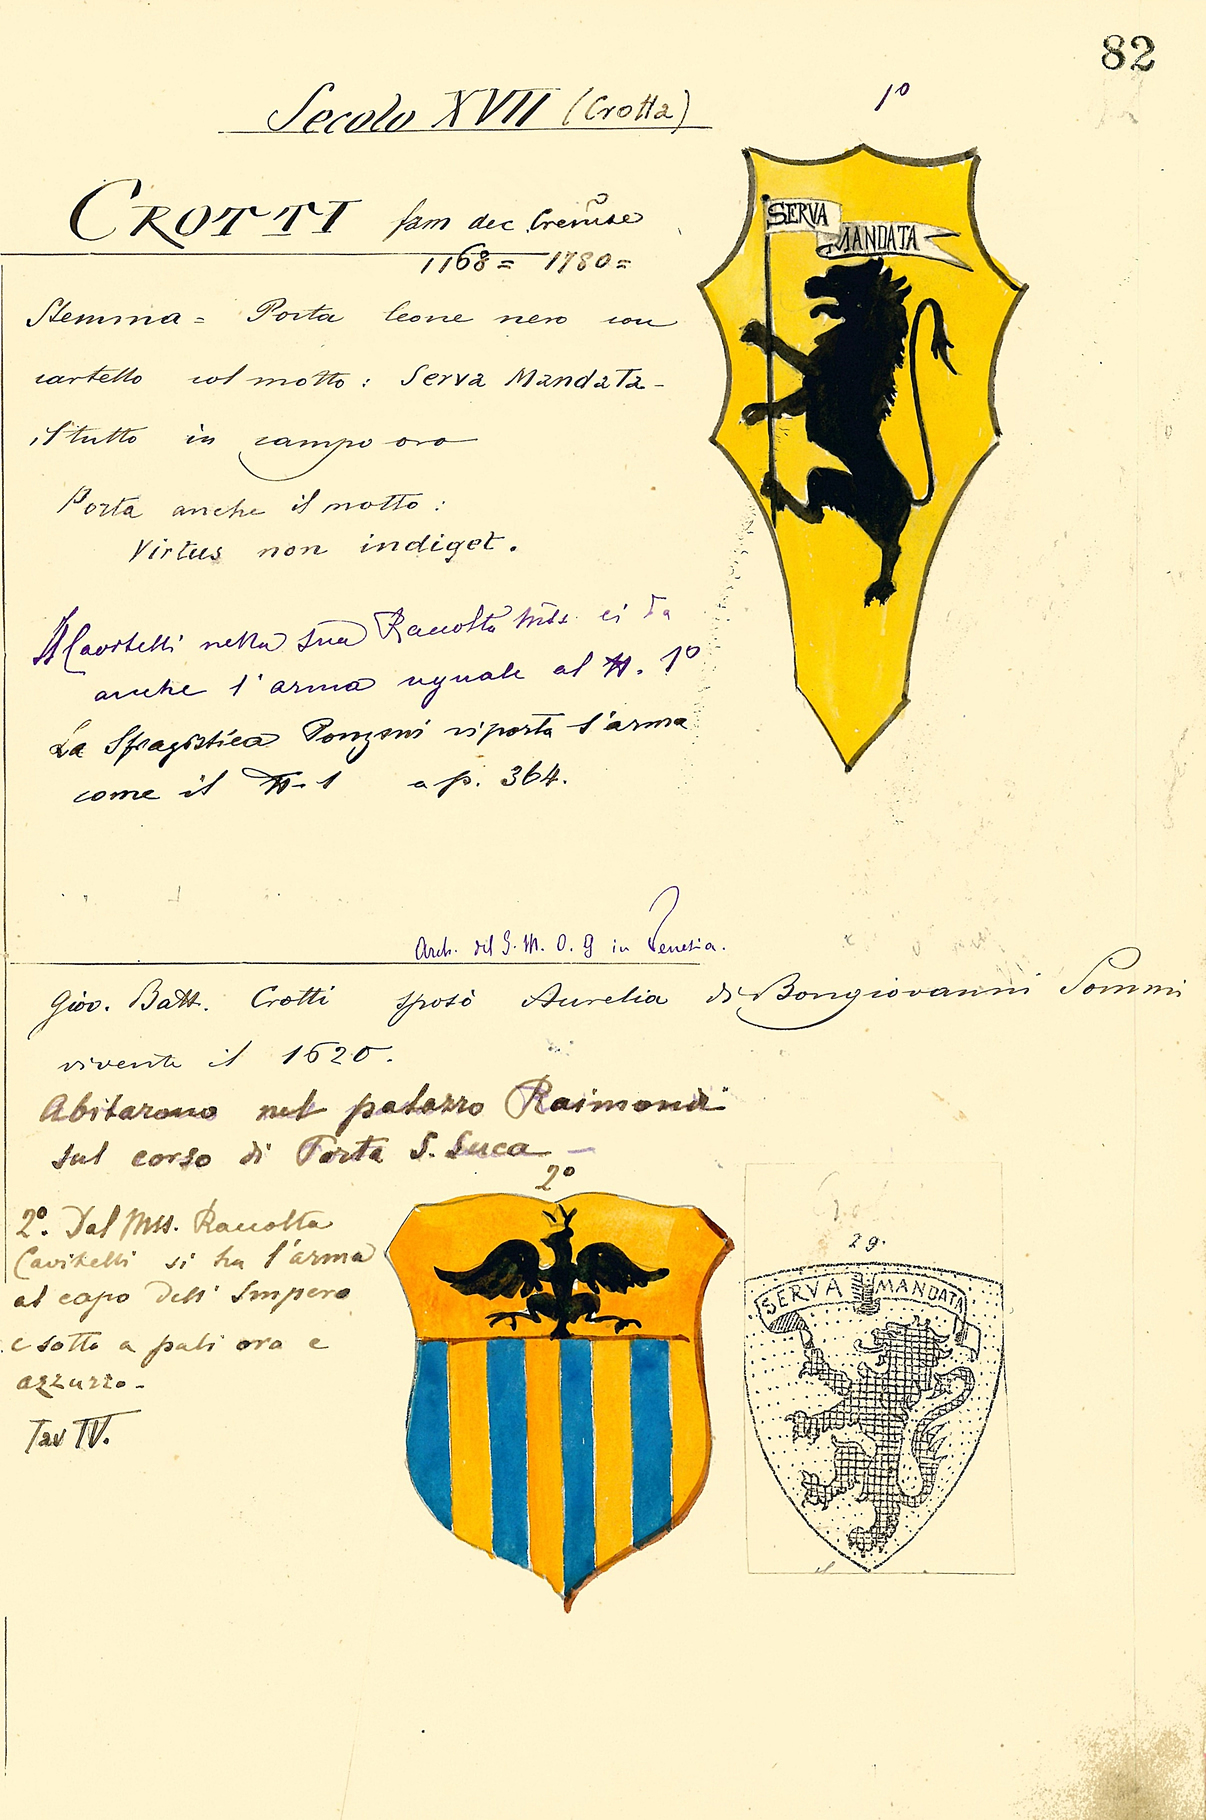 82
Secolo XVII (Crotta)
1º
CROTTI fam dec Cremse
1168 = 1780 =
SERVA
MANDATA
Stemma = Porta leone nero con
cartello col motto: Serva Mandata -
il tutto in campo oro
Porta anche il motto:
Virtus non indiget.
Il Cavitelli nella sua Raccolta Mss. ci dà
anche l'arma uguale al N. 1º
La Sfragistica Ponzoni riporta l'arma
come il N. 1 a p. 364.
Arch. del S. M. O. G in Venezia.
Giov. Batt. Crotti sposò Aurelia di Bongiovanni Sommi
vivente il 1620.
Abitarono nel palazzo Raimondi
sul corso di Porta S. Luca -
2º
2º. Dal Mss. Raccolta
Cavitelli si ha l'arma
al capo dell' Impero
e sotto a pali oro e
azzurro -
Tav IV.
29.
SERVA MANDATA